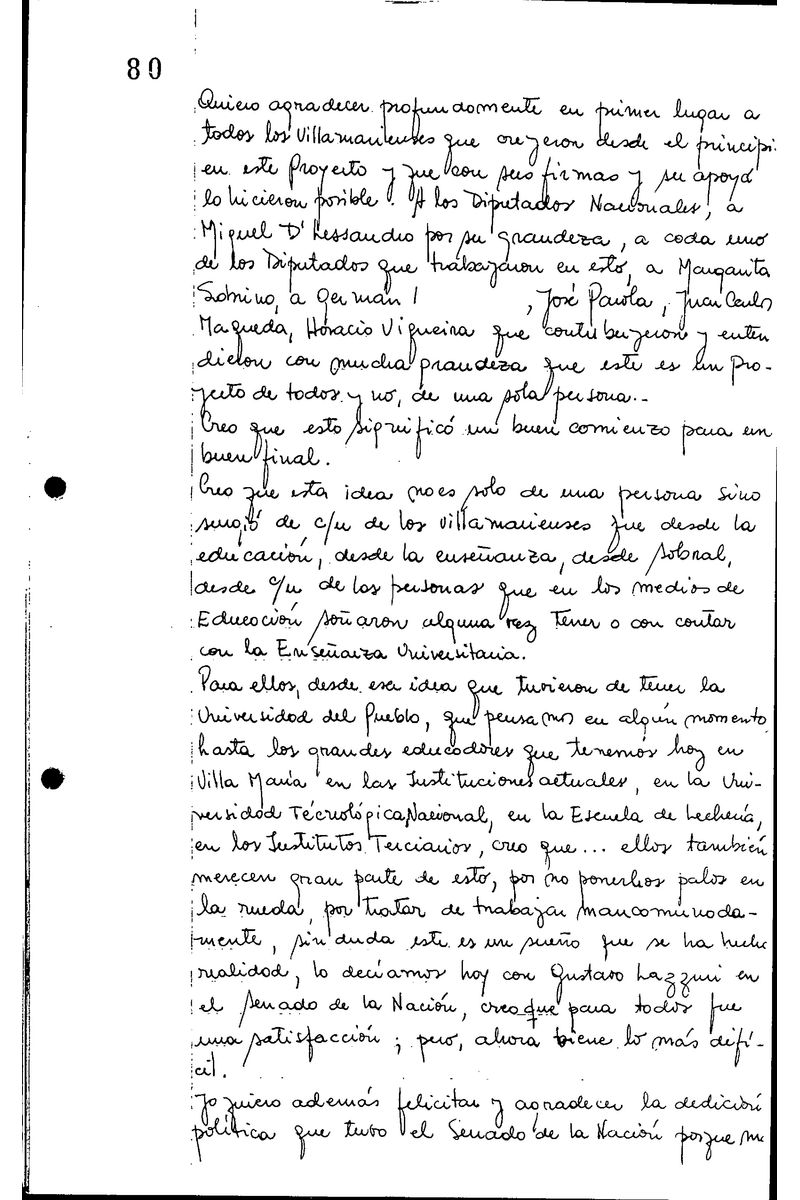 80
Quiero agradecer profundamente en primer lugar a
todos los Villamarienses que creyeron desde el principi
en este Proyecto y que con sus firmas y su apoyo
lo hicieron posible. A los Diputados Nacionales, a
Miguel D'Lessandro por su grandeza, a cada uno
de los Diputados que trabajaron en esto, a Margarita
Sobrino, a Germán , José Parola, Juan Carlos
Maqueda, Horacio Vigueira que contribuyeron y enten
dieron con mucha grandeza que este es un Pro-
yecto de todos y no, de una sola persona.-
Creo que esto significó un buen comienzo para un
buen final.
Creo que esta idea no es solo de una persona sino
surgió de c/u de los Villamarienses que desde la
educación, desde la enseñanza, desde Sobral,
desde c/u de las personas que en los medios de
Educación soñaron alguna vez Tener o con contar
con la Enseñanza Universitaria.
Para ellos, desde esa idea que tuvieron de tener la
Universidad del Pueblo, que pensamos en algún momento
hasta los grandes educadores que tenemos hoy en
Villa María en las Instituciones actuales, en la Uni-
versidad Técnológica Nacional, en la Escuela de Lechería,
en los Institutos Terciarios, creo que... ellos también
merecen gran parte de esto, por no ponerlos palos en
la rueda, por tratar de trabajar mancomunada-
mente, sin duda este es un sueño que se ha hecho
realidad, lo decíamos hoy con Gustavo Lazzuri en
el Senado de la Nación, creo que para todos fue
una satisfacción; pero, ahora viene lo más difí-
cil.
Yo quiero además felicitar y agradecer la dedición
política que tuvo el Senado de la Nación porque me